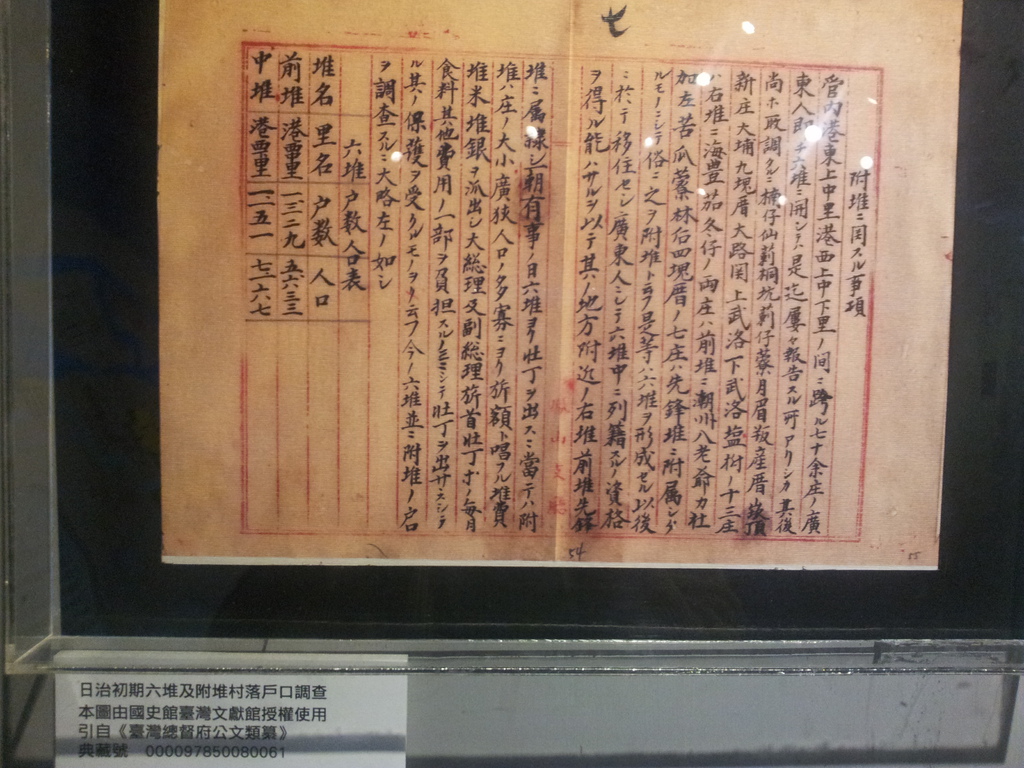 七
附堆ニ関スル事項
管内港東上中里港西上中下里ノ間ニ跨ル七十余庄ノ廣
東人即チ六堆ニ関シテハ是迄屢々報告スル所アリシカ其後
尚ホ取調クルニ楝仔仙莿桐坑莿仔藔月眉坂産厝崁頂
新庄大埔九塊厝大路関上武洛下武洛塩樹ノ十三庄
ハ右堆ニ海豊茄冬仔ノ両庄ハ前堆ニ潮州八老爺力社
加左苦瓜藔林后四塊厝ノ七庄ハ先鋒堆ニ附属シタ
ルモノニシテ俗ニ之ヲ附堆ト云フ是等ハ六堆ヲ形成セル以後
ニ於テ移住セシ廣東人ニシテ六堆中ニ列籍スルノ資格
ヲ得ル能ハサルヲ以テ其ノ地方附近ノ右堆前堆先鋒
堆ニ属隷シ一朝有事ノ日六堆ヨリ壮丁ヲ出スニ當テハ附
堆ハ庄ノ大小廣狭人口ノ多寡ニヨリ旂額ト唱フル堆費
堆米堆銀ヲ派出シ大総理及副総理旂首壮丁ホノ毎月
食料其他費用ノ一部ヲ負担スルノミニシテ壮丁ヲ出サスシテ
ル其ノ保護ヲ受クルモノヲリ云フ今ノ六堆並ニ附堆ノ戸口
ヲ調査スルニ大略左ノ如シ
六堆戸数人口表
堆名 里名 户数 人口
前堆 港西里 一、三二九 五六三三
中堆 港西里 一、一五一 七三六七
鳳山支廳
54
55
日治初期六堆及附堆村落戶口調查
本圖由國史館臺灣文獻館授權使用
引自《臺灣總督府公文類纂》
典藏號 000097850080061